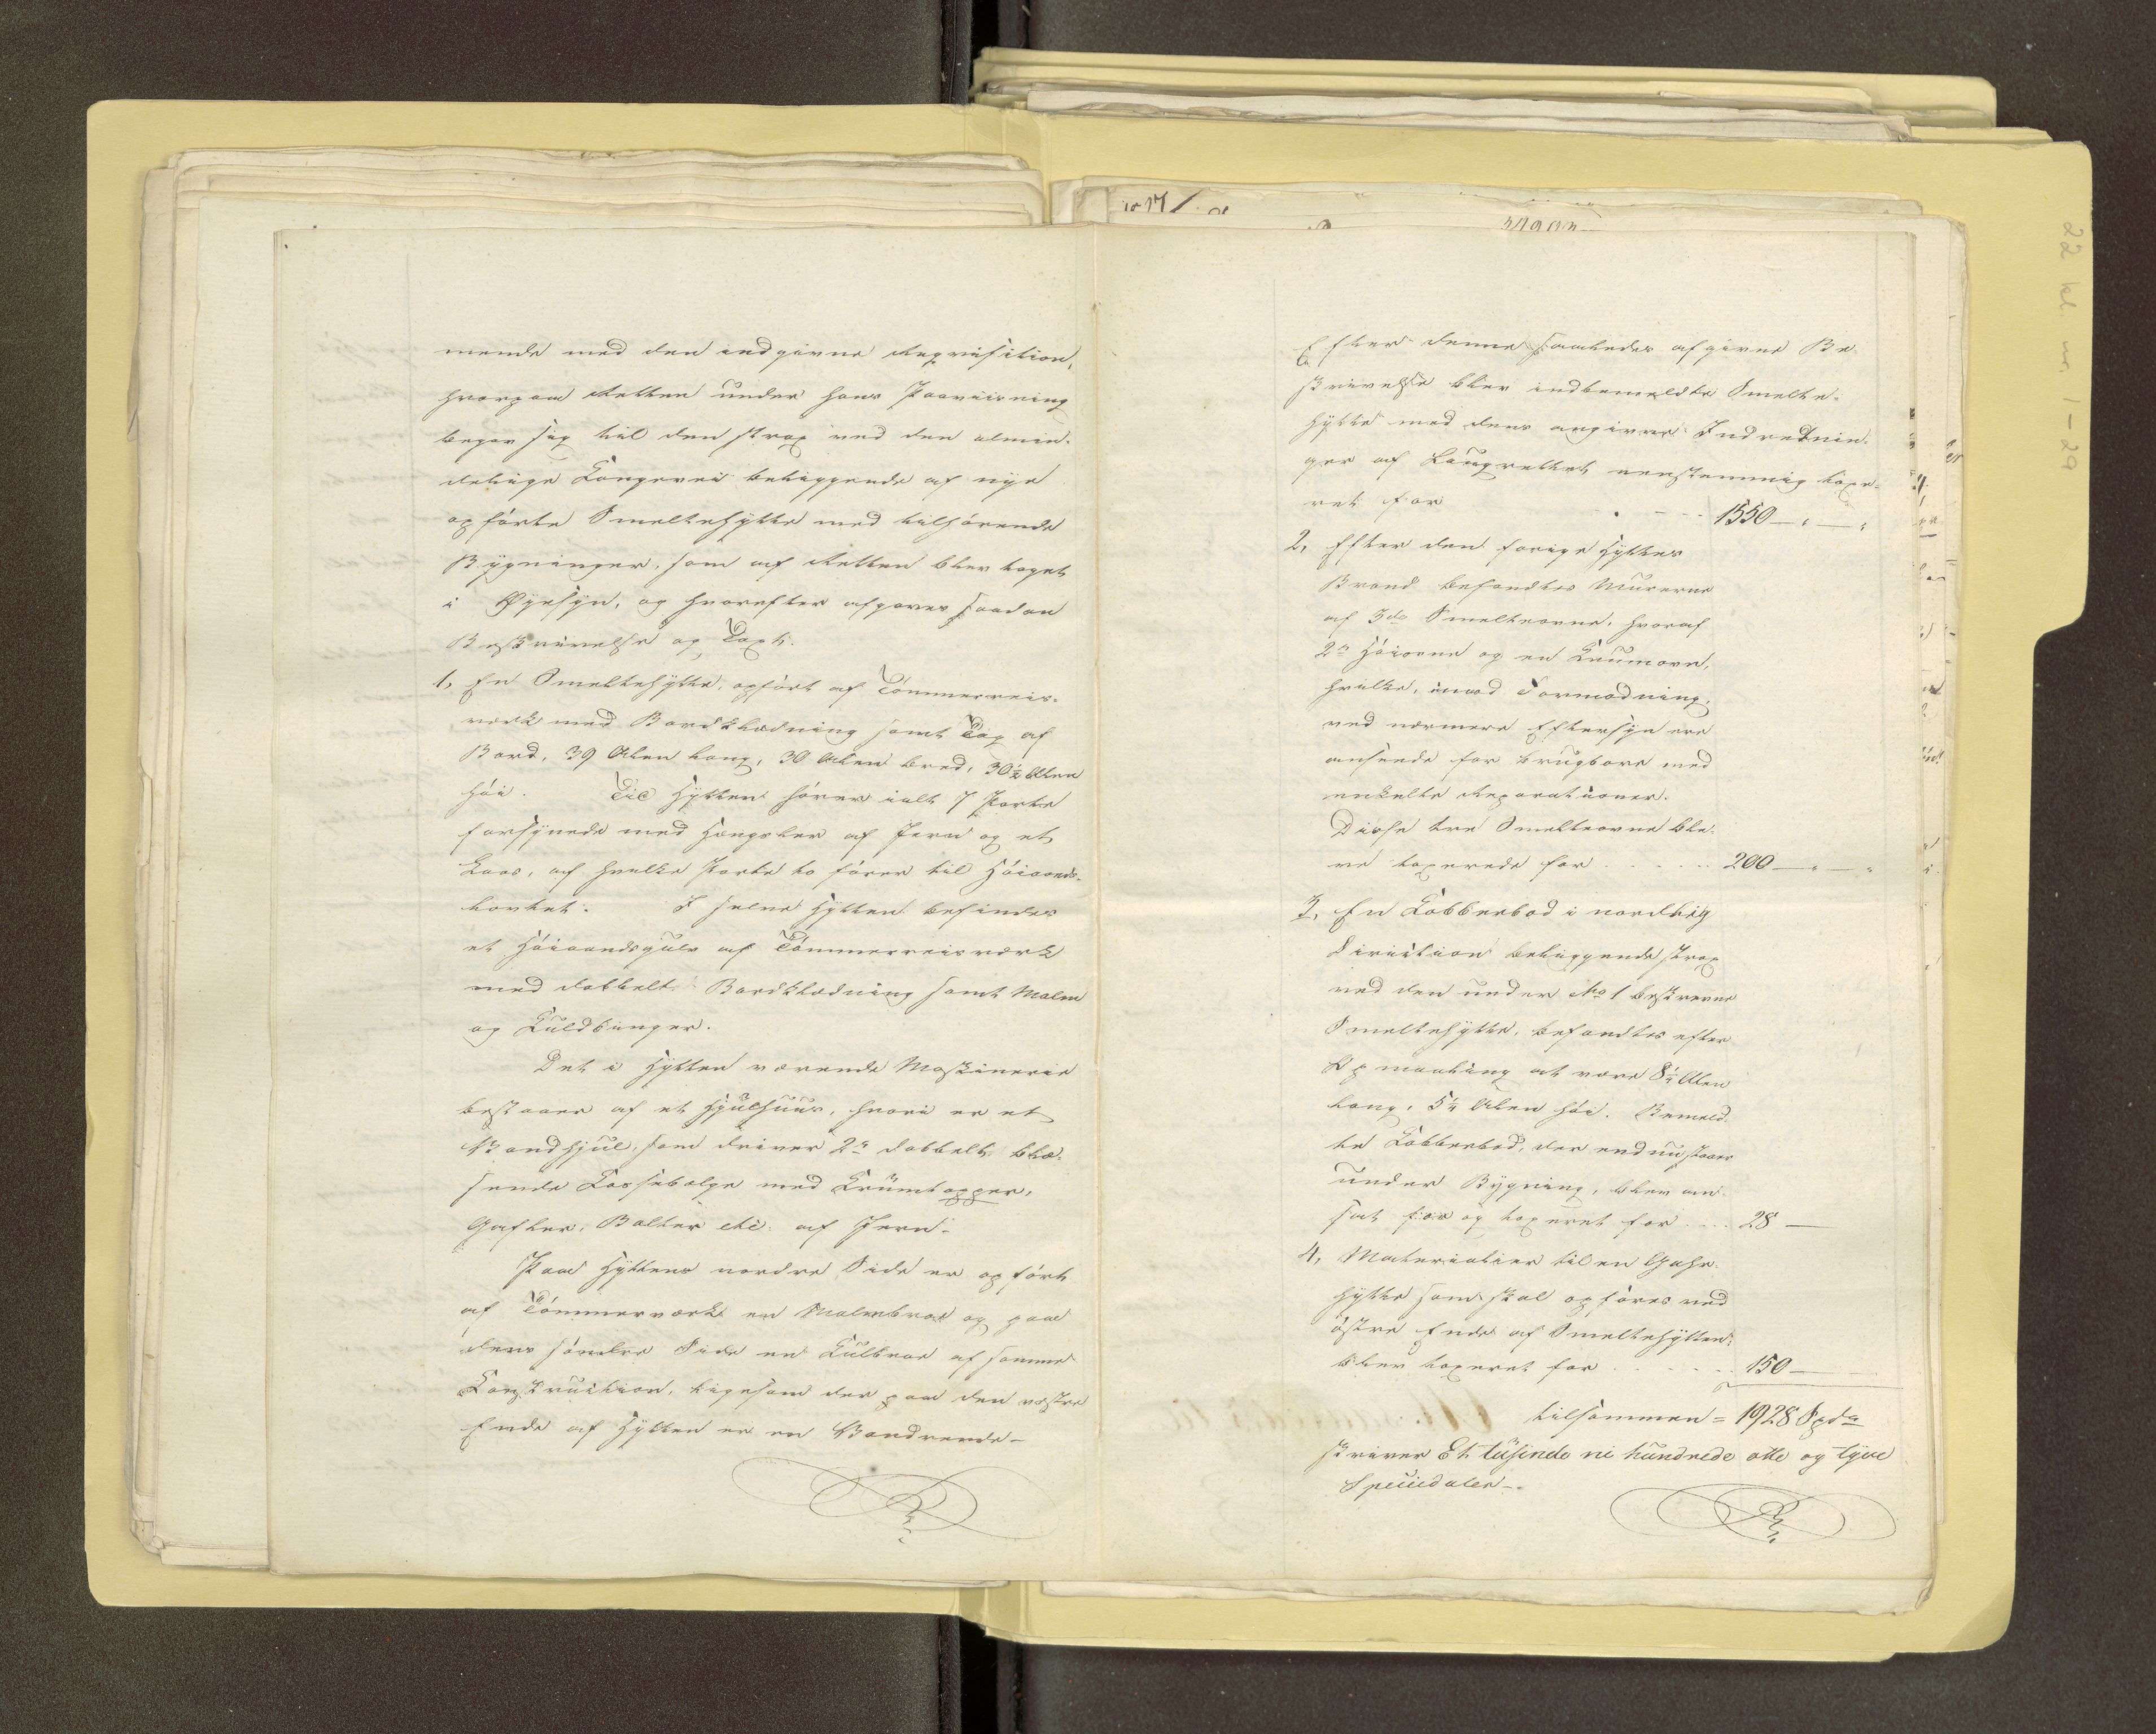 mende med den indgivne Reqvisition,
hvorpaa Retten under hans Paaviisning
begav sig til den strax ved den almin-
delige Kongevei beliggende af nye
opförte Smeltehytte med tilhörende
Bygninger, som af Retten blev taget
i Öyesyn, og hvorefter afgaves saadan
Beskrivelse og Taxt:
1, En Smeltehytte, opfört af Tömmerreis-
værk med Bordklædning samt Tag af
Bord, 39 Alen lang, 30 Alen bred, 30½ Alen
höi. Til Hytten hörer ialt 7 Porte
forsynede med Hængsler af Jern og et
Laas, af hvilke Porte to förer til Höiovns-
lovtet. I selve Hytten befindes
et Höiovnsgulv af Tömmerreisværk
med dobbelt Bordklædning samt Malm
og Kuldbinger.
Det i Hytten værende Maskinerie
bestaaer af et Hjulhuus, hvori er et
Vandhjul, som driver 2de dobbelt blæ-
sende Kassebælge med Krumtapper,
Gafler, Bolter etc: af Jern.
Paa Hyttens nordre Side er opfört
af Tömmerværk en Malmbroe og paa
dens söndre Side en Kulbroe af samme
Construction, ligesom der paa den vestre
Ende af Hytten er en Vandrende -
Efter denne saaledes afgivne Be-
skrivelse blev indbemeldte Smelte-
hytte med dens angivne Indretnin-
ger af Laugrettet eenstemmig taxe-
ret for - - - 1550 — " — "
2, Efter den forige Hyttes
Brand befandtes Murerne
af 3de Smelteovne, hvoraf
2de Höiovne og en Krumovn,
hvilke, imod Formodning,
ved nærmere Eftersyn ere
anseede for brugbare med
enkelte Reparationer.
Disse tre Smelteovne ble-
ve taxerede for - - - 200 — " — "
3, En Kobberbod i nordlig
Direction beliggende strax
ved den under No 1 beskrevne
Smeltehytte, befandtes efter
Opmaaling at være 8½ Alen
lang, 5¼ Alen höi. Bemeld-
te Kobberbod, der endnu staaer
under Bygning, blev an-
sat for og taxeret for - - 28 —
4, Materialier til en Gahr-
hytte som skal opföres ved
östre Ende af Smeltehytten,
blev taxeret for - - - 150 —
tilsammen = 1928 Spdr
skriver Et tusinde ni hundrede otte og tyve
Speciedaler -.
22 kl nr 1-29